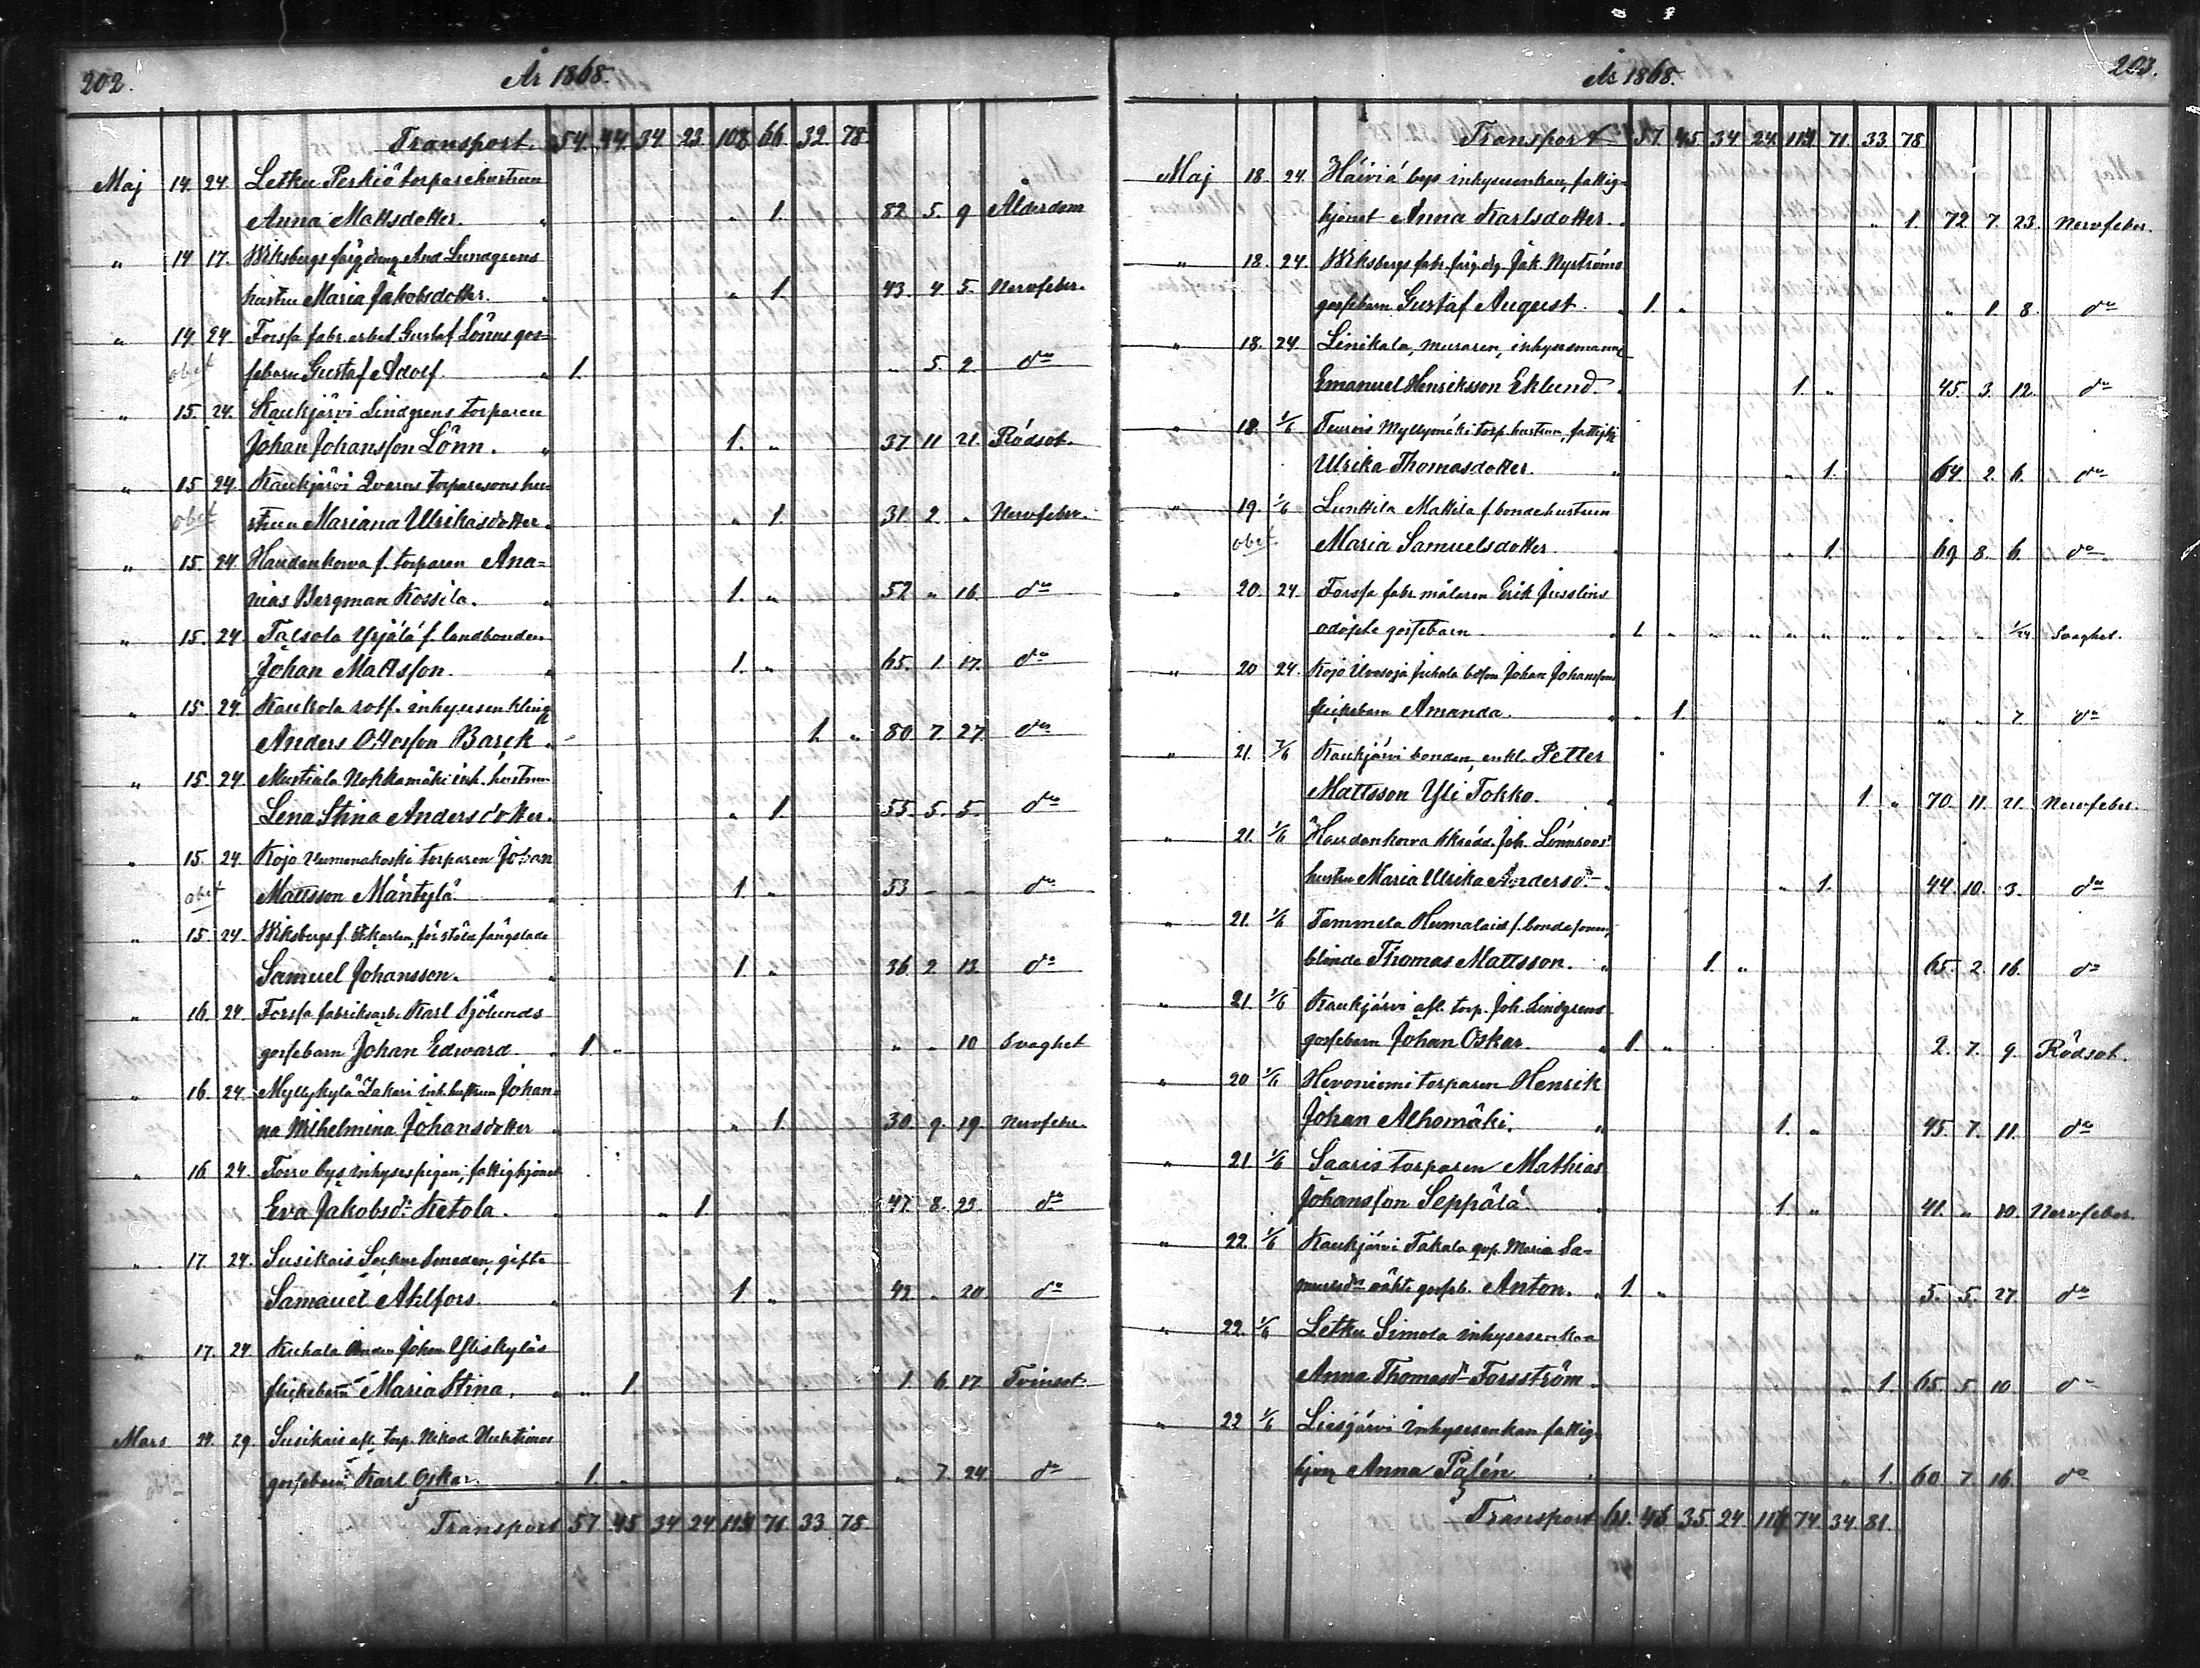 202. År 1868.
Transport. 54. 44. 34 23. 108 66. 32. 78.
Maj 14. 24. Letku Perkiö torparehustrun
Anna Mattsdotter. " " 1. 82. 5. 9 Ålderdom
" 14 17. Wiksbergs färg.dreng And. Lundgrens
hustru Maria Jakobsdotter. " 1. 43. 4 5. Nervfeber.
" 14. 24. Forssa fabr. arbet. Gustaf Lönns gos-
obet sebarn Gustaf Adolf. " 1. " 5. 2 do
" 15. 24. Kaukjärvi Lindgrens torparen
Johan Johansson Lönn. " 1. " 37. 11 21. Rödsot.
" 15 24. Kaukjärvi Qvarns torparesons hu-
obet strun Mariana Ulrikasdotter. " 1. 31. 2. " Nervfebr.
" 15. 24. Haudankorva f. torparen Ana-
nias Bergman Kossila. " 1. " 52. " 16. do
" 15. 24 Talsola Yrjälä f. landbonden
Johan Mattsson. " 1. " 65. 1. 17. do
" 15. 24. Kaukola rotf. inhysesenkling
Anders Ottosson Barck. 1. " 80. 7. 27. do
" 15. 24. Mustiala Nokkamäki inh. hustrun
Lena Stina Andersdotter. " 1. 55. 5. 5. do
" 15. 24. Kojo Nummenakoski torparen Johan
obet Mattsson Mäntylä. " 1. " 53 - - do
" 15. 24. Wiksbergs f. karlen, för stöld fängslade
Samuel Johansson. " 1. " 36. 2 13. do
" 16. 24. Forssa fabriksarb. Karl Sjölunds
gossebarn Johan Edward. " 1. " " " 10 Svaghet
" 16. 24. Myllykylä Zakari inh. hustrun Johan-
na Wilhelmina Johansdotter " " 1. 30. 9. 19. Nervfebr.
" 16. 24. Torro bys inhysespigan, fattighjonet
Eva Jakobsdr Ketola. " " 1. 47. 8. 23. do
" 17. 24. Susikais Socknesmeden, gifte
Samauel Ahlfors. " 1. " 42. " 20. do
" 17. 24 Kuhala bonden Johan Yliskyläs
flickebarn Maria Stina. " " 1. 1. 6. 17 Tvinsot
Mars 24. 29. Susikais afl. torp. Nikod.
gossebarn Karl Oskar. " 1. " " 7. 24. do
Transport 57. 45. 34. 24. 114. 71. 33. 78.
År 1868. 203.
Transport 57. 45. 34. 24. 114. 71. 33. 78
Maj 18. 24. Häiviä bys inhysesenkan, fattig-
hjonet Anna Karlsdotter. " " 1. 72. 7. 23. Nervfeber.
" 18. 24. Wiksbergs fabr. färg.dg. Jak. Nyströms
gossebarn Gustaf August. " 1. " " 1. 8. do
" 18. 24 Linikala, muraren, inhysesmannen
Emanuel Henriksson Eklund. 1. " 45. 3. 12. do
" 18. 1/6 Teurois Myllymäki torp. hustrun, fattighj.
Ulrika Thomasdotter. " " 1. 64. 2. 6. do
" 19. 1/6 Lunttila Mattila f. bondehustrun
obet Maria Samuelsdotter. " 1. 69. 8. 6. do
" 20. 24. Forssa fabr. målaren Erik Jusslins
odöpte gossebarn " 1. " " " " " " " " " 1/24. Svaghet.
" 20 24. Kojo Uvasoja Juhala bdson Johan Johanssons
flickebarn Amanda. " " 1. " " 7. do
" 21. 7/6 Kaukjärvi bonden, enkl. Petter
Mattsson Yli Tokko. " 1. " 70. 11. 21. Nervfeber.
" 21. 1/6 Haudankorva skrädd. Joh. Lönnroos'
hustru Maria Ulrika Andersdr. " 1. 44. 10. 3. do
" 21. 1/6 Tammela Humalais f. bondesonen,
blinde Thomas Mattsson. " 1. " 65. 2. 16. do
" 21 1/6 Kaukjärvi afl. torp. Joh. Lindgrens
gossebarn Johan Oskar. " 1. " 2. 7. 9. Rödsot.
" 20 1/6 Hevoniemi torparen Henrik
Johan Alhomäki. " 1. " 45. 7. 11. do
" 21. 1/6 Saaris torparen Mathias
Johansson Seppälä. " 1. " 41. " 10. Nervfeber.
" 22. 1/6 Kaukjärvi Takala qvp. Maria Sa-
muelsdrs oäkta gosseb. Anton. " 1. " 5. 5. 27 do
" 22. 1/6 Letku Simola inhysesenkan
Anna Thomasdr Forsström. " 1. 65. 5. 10 do
" 22 1/6 Liesjärvi inhysesenkan fattig-
hjon Anna Palén " " 1. 60. 7. 16. do
Transport 61. 46. 35. 24. 118. 74. 34. 81.